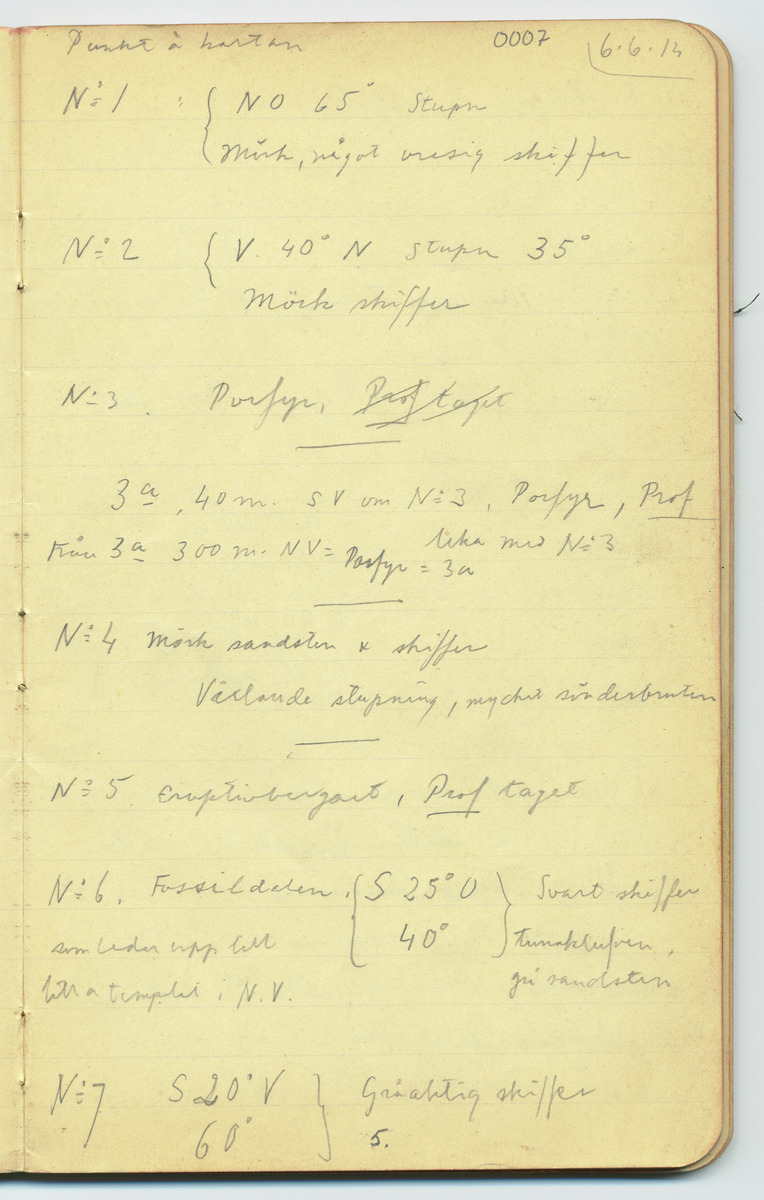 Punkt å kartan 0007 6.6.14
Nº 1 : { NO 65° Stupn
Mörk, något vresig skiffer
Nº 2 { V. 40° N Stupn 35°
Mörk skiffer
Nº 3. Porfyr, Prof taget
3a, 40 m. SV om Nº 3, Porfyr, Prof
Från 3a 300 m. NV = Porfyr = 3a lika med Nº 3
Nº 4 Mörk sandsten & skiffer
Växlande stupning, mycket sönderbruten
Nº 5 Eruptivbergart, Prof taget
Nº 6. Fossildalen, { S 25° O } Svart skiffer
som leder upp till 40° tunnkluven,
lilla templet i N.V. grå sandsten
Nº 7 S 20° V } Gråaktig skiffer
60° 5.